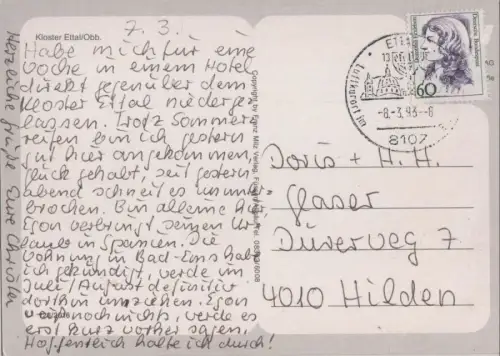 Kloster Ettal/Obb.
7.3.
Habe mich für eine
Woche in einem Hotel
direkt gegenüber dem
Kloster Ettal niederge-
lassen. Trotz Sommer-
reifen bin ich gestern
gut hier angekommen,
Glück gehabt, seit gestern
abend schneit es ununter-
brochen. Bin alleine hier,
Egon verbringt seinen Ur-
laub in Spanien. Die
Wohnung in Bad-Ems habe
ich gekündigt, werde im
Juli/August definitiv
dorthin umziehen. Egon
noch nichts, werde es
erst kurz vorher sagen.
Hoffentlich halte ich durch!
Herzliche Grüße Eure Christa
Copyright by Franz Milz Verlag,
Deutsche Bundespost
60
Luftkurort
-8.-3.93--8
8107
Doris + H. H.
Glaser
Dürerweg 7
4010 Hilden